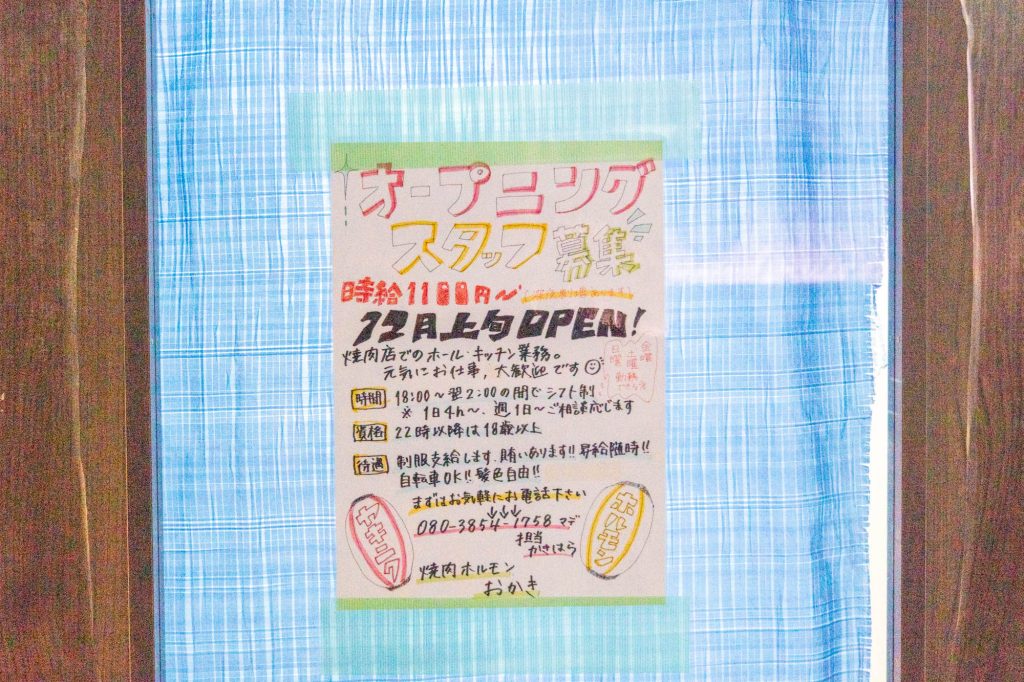 オープニング
スタッフ募集
時給1100円〜
12月上旬OPEN!
焼肉店でのホール・キッチン業務。
元気にお仕事,大歓迎です
金曜
土曜
日曜
勤務
時間 18:00〜翌2:00の間でシフト制
※1日4h〜、週1日〜ご相談応じます
資格 22時以降は18歳以上
待遇 制服支給します、賄いあります!!昇給随時!!
自転車OK!!髪色自由!!
まずはお気軽にお電話下さい
↓↓↓
080-3854-1758マデ
担当
かきはら
ヤキニク
ホルモン
焼肉ホルモン
おかき